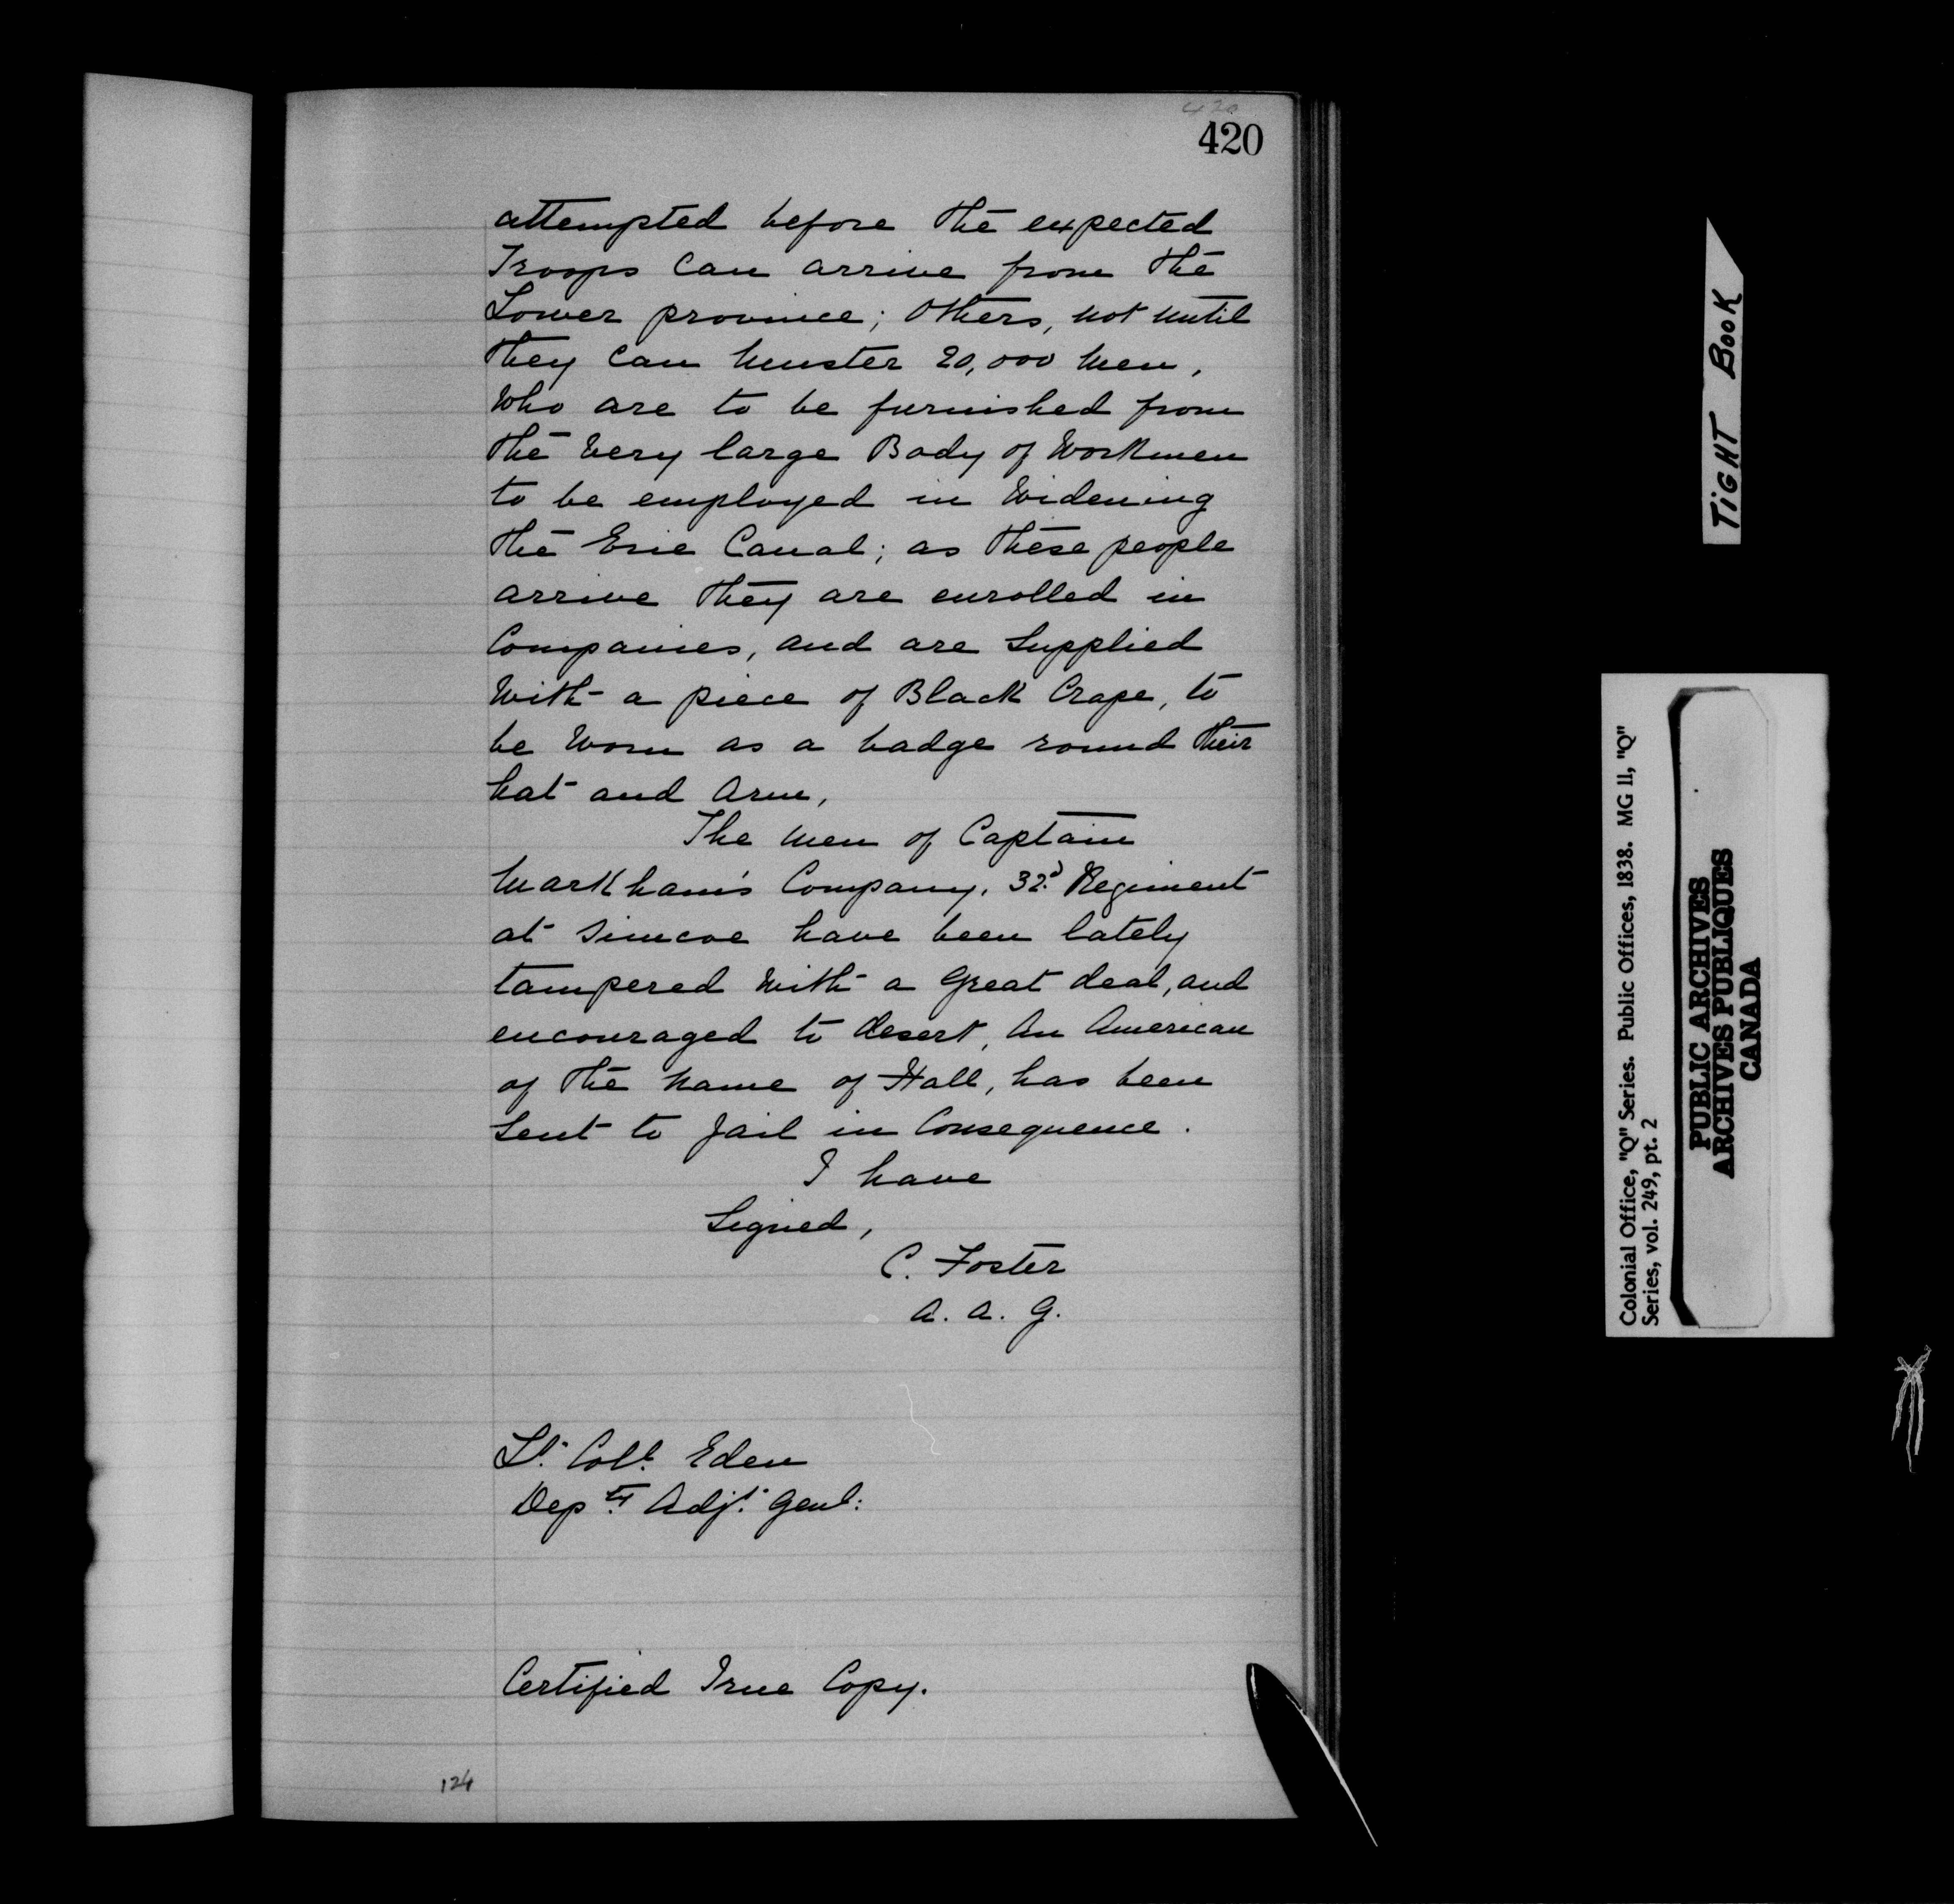 420
420
attempted before the expected
Troops Can arrive from the
Lower province; Others, not until
they Can Muster 20,000 Men,
Who are to be furnished from
the Very large Body of Workmen
to be employed in Widening
the Erie Canal; as these people
arrive they are enrolled in
Companies, and are Supplied
With a piece of Black Crape, to
be Worn as a badge round their
hat and Arm,
The Men of Captain
Markham's Company, 32d Regiment
at Simcoe have been lately
tampered With a Great deal, and
encouraged to desert, An American
of the Name of Hall, has been
Sent to Jail in Consequence.
I have
Signed,
C. Foster
A. A. G.
Lt. Coll. Eden
Depty. Adjt. Genl:
Certified True Copy.
124
TIGHT BOOK
Colonial Office, "Q" Series. Public Offices, 1838. MG 11, "Q"
Series, vol. 249, pt. 2
PUBLIC ARCHIVES
ARCHIVES PUBLIQUES
CANADA